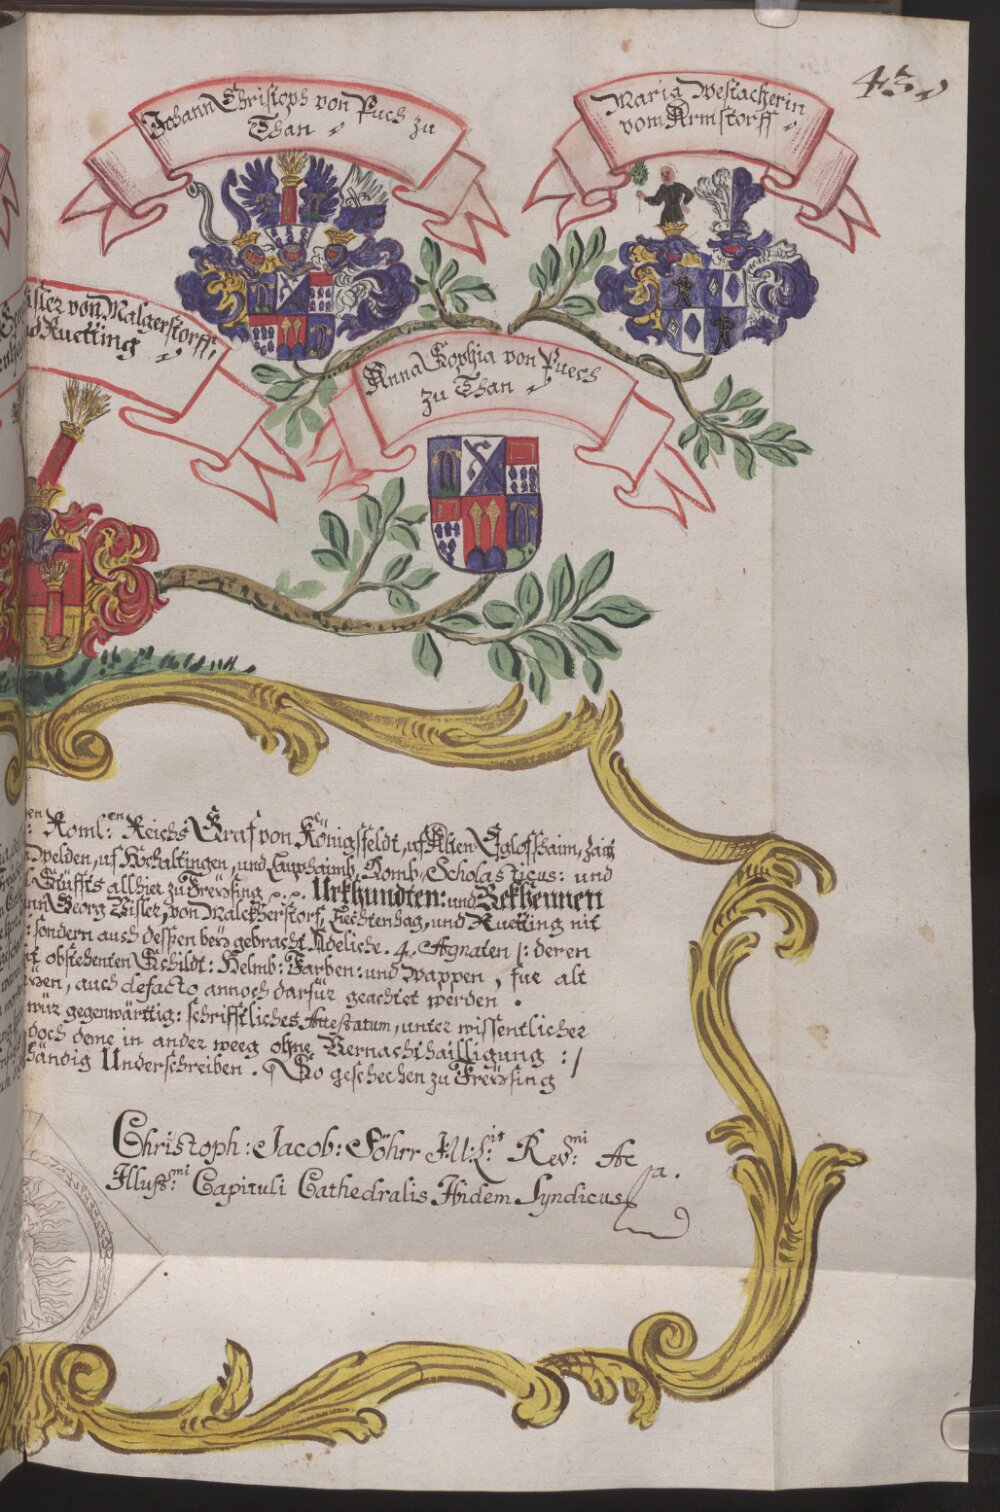 43
Johann Christoph von Puch zu
Than
Maria Westacherin
vom Armstorff
von Malgerstorff,
Ruetting
Anna Sophia von Puech
zu Than
Roml:en Reichs Graf von Königsfeldt, uf Alten Egloffshaim, Zaitz
uf Hochaltingen, und Lauphaimb, Domb Scholasticus: und
Stüffts allhier zu Freysing Urkhundten: und Bekhennen
Georg Visler, von Malckherstorf, Fechtenhag, und Ruetting nit
: sondern auch dessen bey gebracht Adeliche. 4. Agnaten /: deren
obstehenten Schildt: Helmb: Farben: und Wappen, für alt
auch defacto annoch darfür geachtet werden .
wür gegenwärttig: schrifftliches Attestatum, unter wissentlicher
doch deme in ander weeg ohne Vernachthailligung :/
händig Underschreiben. So geschechen zu Freysing
Christoph: Jacob: Söhrr J:U:L:it Rev:mi Ac
Illust:mi Capituli Cathedralis Ibidem Syndicus